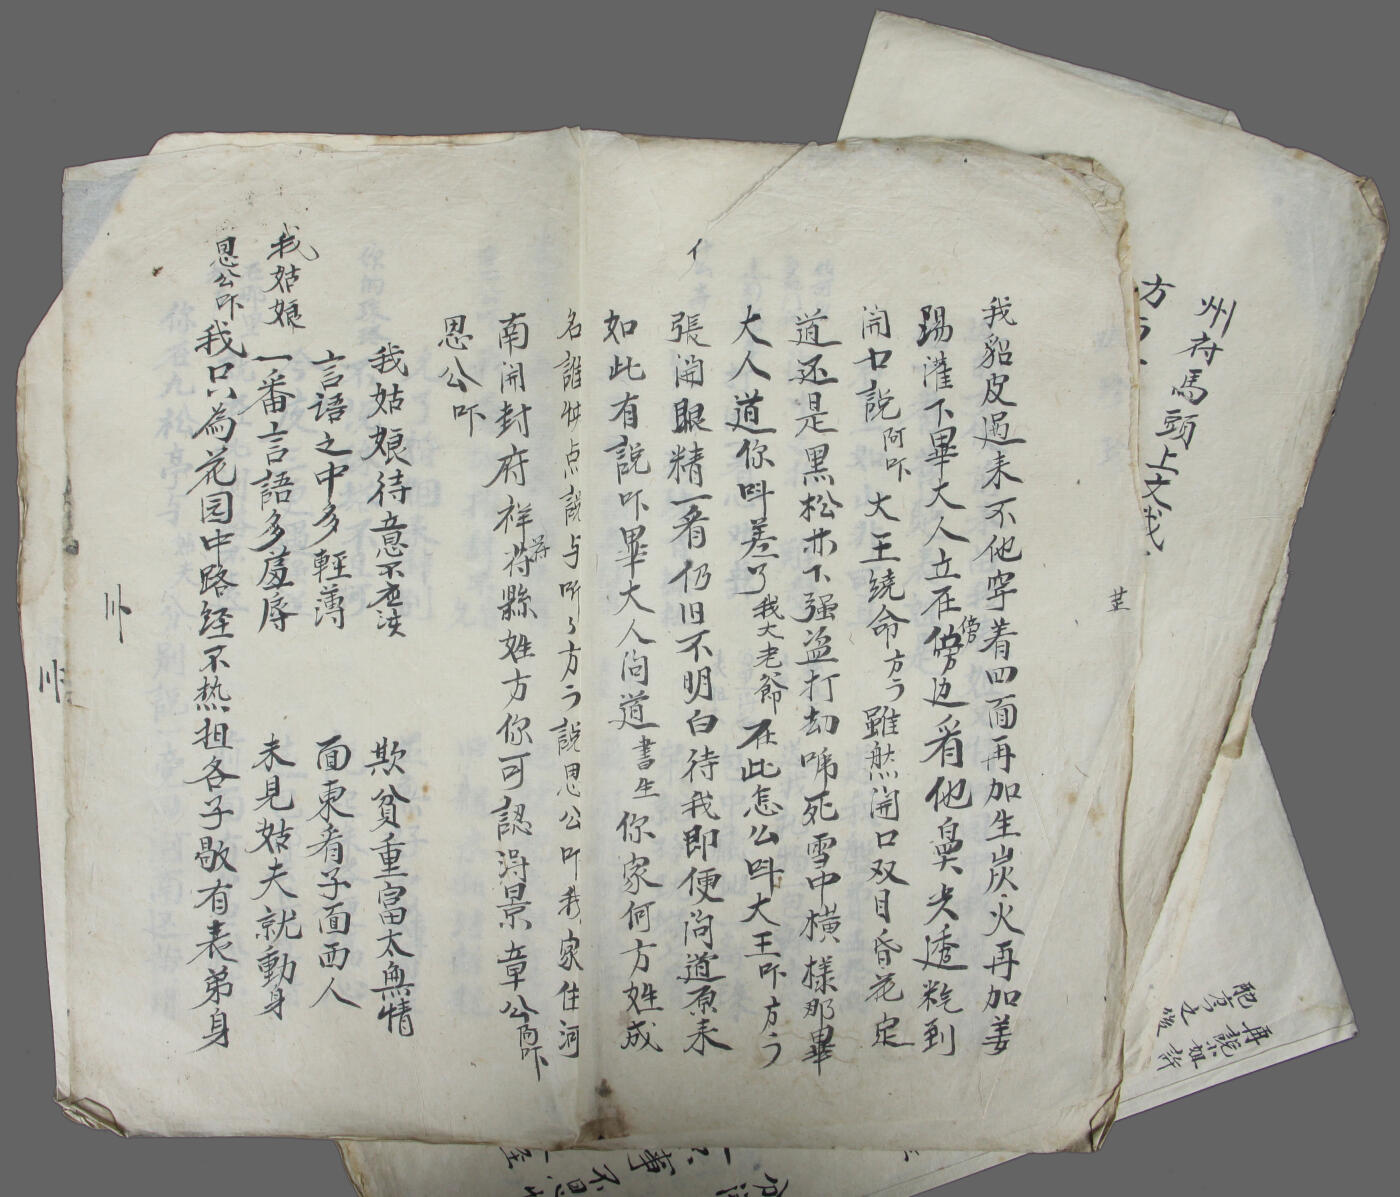 州府馬頭上文我
我貂皮過来不他穿着四面再加生炭火再加姜
踢灌下畢大人立在傍边看他臭火透粃到
傍
開口說阿吓大王繞命方ラ雖然開口双目昏花定
道还是黑松林下强盗打刼唏死雪中横樣那畢
大人道你呌差了我大老爺在此怎么呌大王吓方ラ
張開眼精一看仍旧不明白待我即便问道原来
如此有說吓畢大人问道書生你家何方姓成
名誰快点說与听々方ラ說恩公吓我家住河
南開封府祥符縣姓方你可認淂景章公阿吓
恩公吓
我姑娘待意不应该
欺貧重富太無情
言語之中多輕薄
面東看子面西人
我姑娘一番言語多羞辱
未見姑夫就動身
恩公吓我只為花园中路经不熱担各子敬有表弟身
川
川
再說小姐許
配方ラ之後